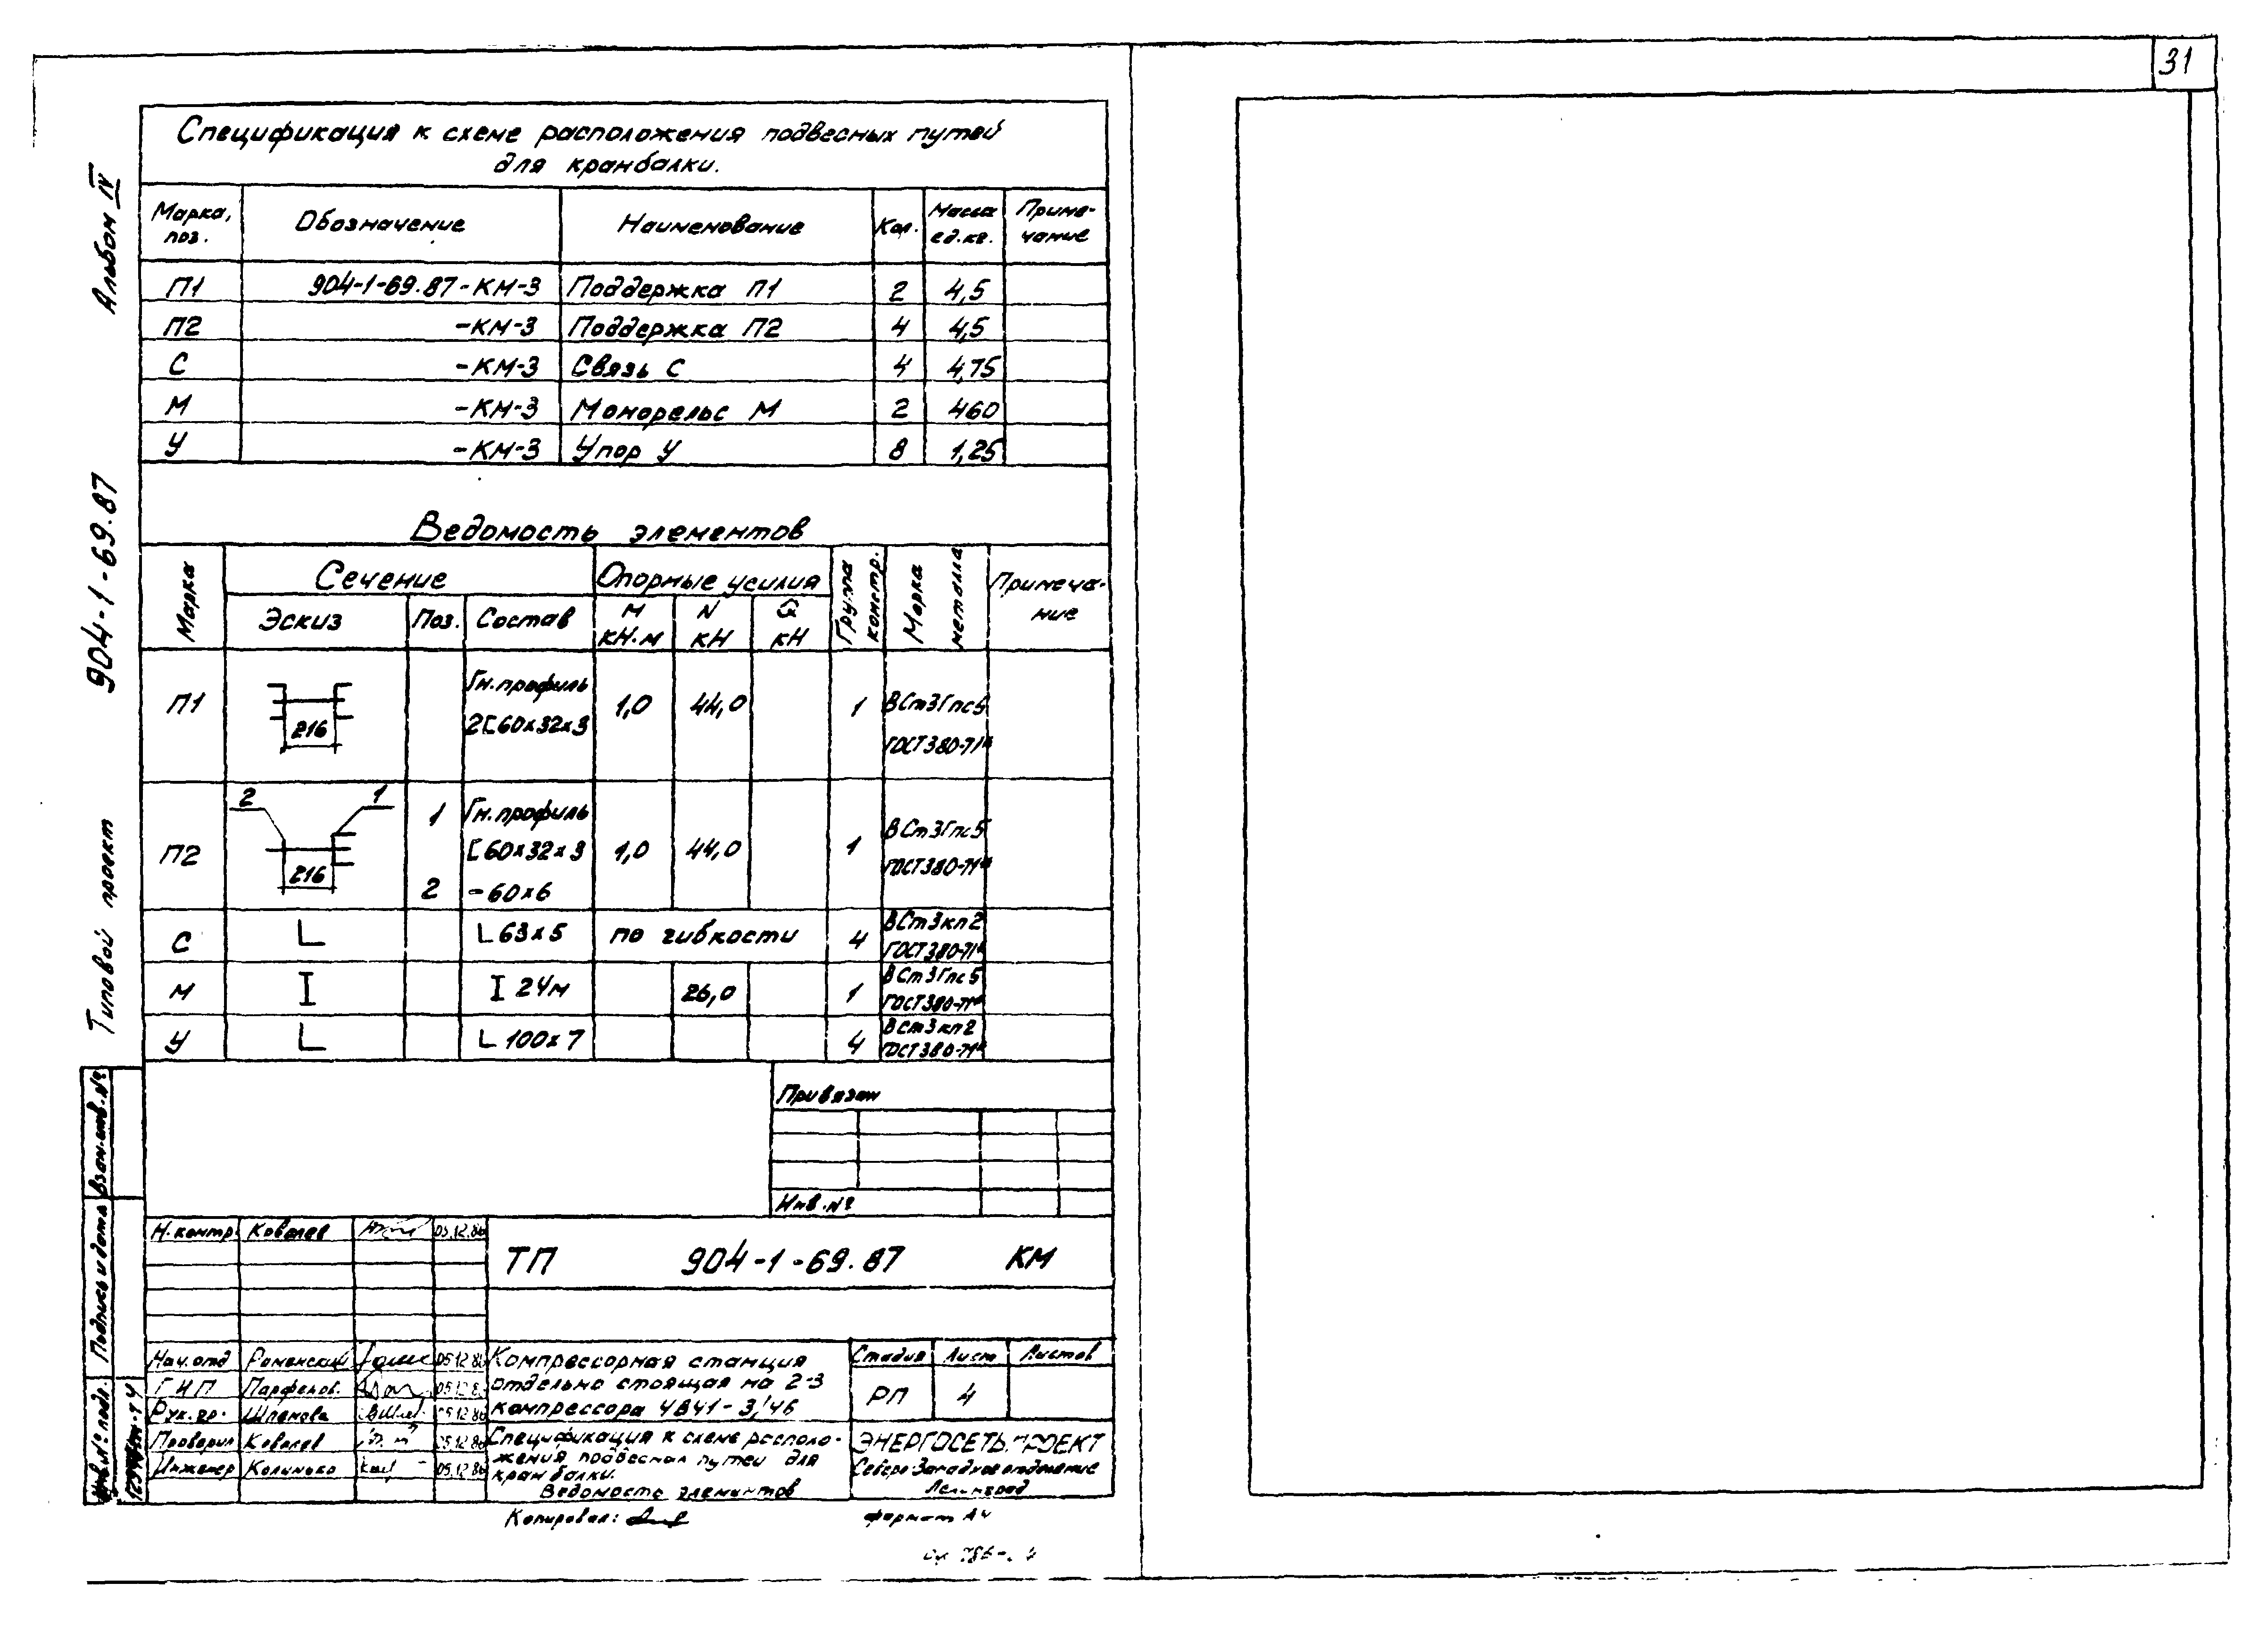 31
Альбом IV
904-1-69.87
Типовой проект
Спецификация к схеме расположения подвесных путей
для кранбалки.
Марка, поз. Обозначение Наименование Кол. Масса ед.кг. Приме-чание
П1 904-1-69.87-КМ-3 Поддержка П1 2 4,5
П2 -КМ-3 Поддержка П2 4 4,5
С -КМ-3 Связь С 4 4,75
М -КМ-3 Монорельс М 2 460
У -КМ-3 Упор У 8 1,25
Ведомость элементов
Марка Сечение Опорные усилия Группа констр. Марка металла Примеча-ние
Эскиз Поз. Состав М кН·м N кН Q кН
П1 216 Гн.профиль 2[60х32х3 1,0 44,0 1 ВСт3Гпс5 ГОСТ380-71*
П2 2 1 216 1 Гн.профиль [60х32х3 1,0 44,0 1 ВСт3Гпс5 ГОСТ380-71*
2 -60х6
С L L63х5 по гибкости 4 ВСт3кп2 ГОСТ380-71*
М I I 24м 26,0 1 ВСт3Гпс5 ГОСТ380-71*
У L L 100х7 4 ВСт3кп2 ГОСТ380-71*
Привязан
Инв.№
Взам.инв.№
Подпись и дата
Инв.№ подл.
Н.контр. Ковалев 05.12.86
ТП 904-1-69.87 КМ
Нач.отд Роменский 05.12.86
ГИП Парфенов.
Рук.гр. Шленова 05.12.86
Проверил Ковалев 05.12.86
Инженер Калинько 05.12.86
Компрессорная станция
отдельно стоящая на 2-3
компрессора 4ВУ1-3/46
Стадия Лист Листов
РП 4
Спецификация к схеме располо-
жения подвесных путей для
кранбалки.
Ведомость элементов
ЭНЕРГОСЕТЬПРОЕКТ
Северо-Западное отделение
Ленинград
Копировал:
формат А4